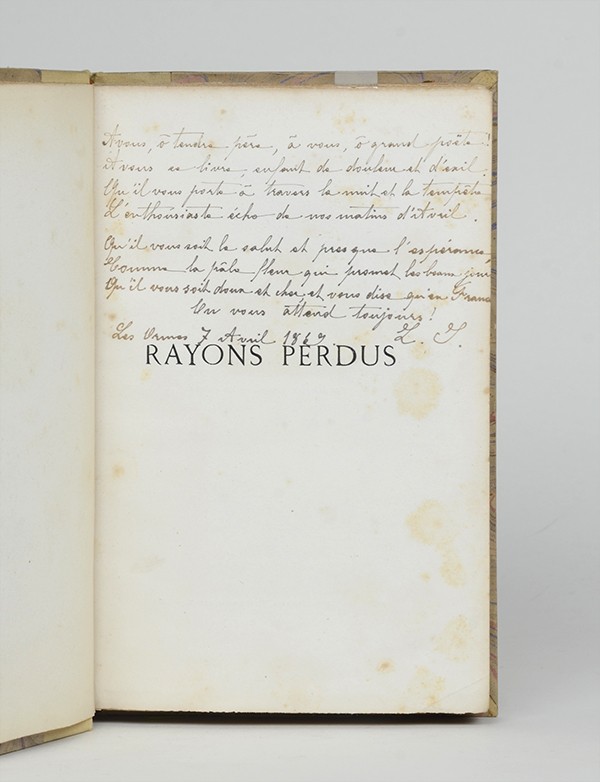 A vous, ô tendre père, à vous, ô grand poëte!
A vous ce livre, enfant de douleur et d'exil.
Qu'il vous porte à travers la nuit et la tempête
L'enthousiaste écho de nos matins d'Avril.
Qu'il vous soit le salut et presque l'espérance,
Comme la pâle fleur qui promet les beaux jours
Qu'il vous soit doux et cher et vous dise qu'en France
On vous attend toujours!
Les Ormes 7 Avril 1869. L. S.
RAYONS PERDUS